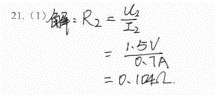 21. (1) 解：R₂ = U₂/I₂
= 1.5V/0.7A
= 0.104Ω